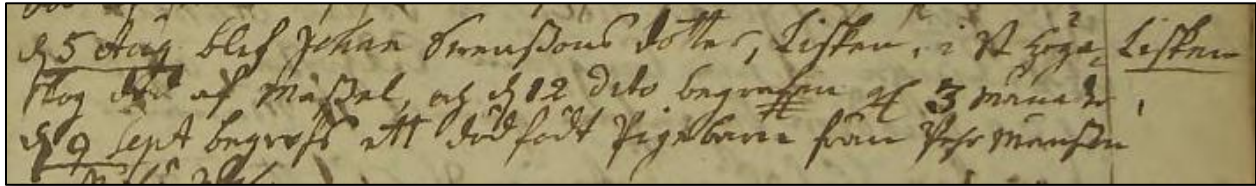 d 5 Aug blef Johan Swenßons dotter, Lisken, i St Höga, Lisken
skog död af Mäßel, och d 12 dito begrafen 3 månader
d 9 Sept begrofs ett dödfödt Pigebarn från Pehr Månßon